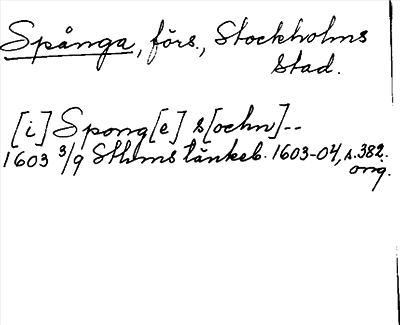 Spånga, förs., Stockholms
stad.
[i] Spong[e] s[ochn]--
1603 3/9 Sthms tänkeb. 1603-04, s. 382.
orig.